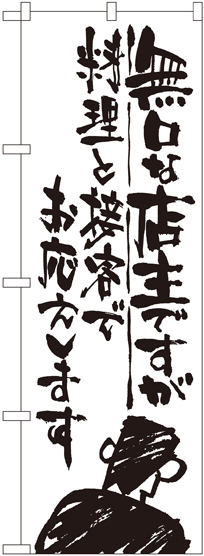 無口な店主ですが
料理と接客で
お応えします